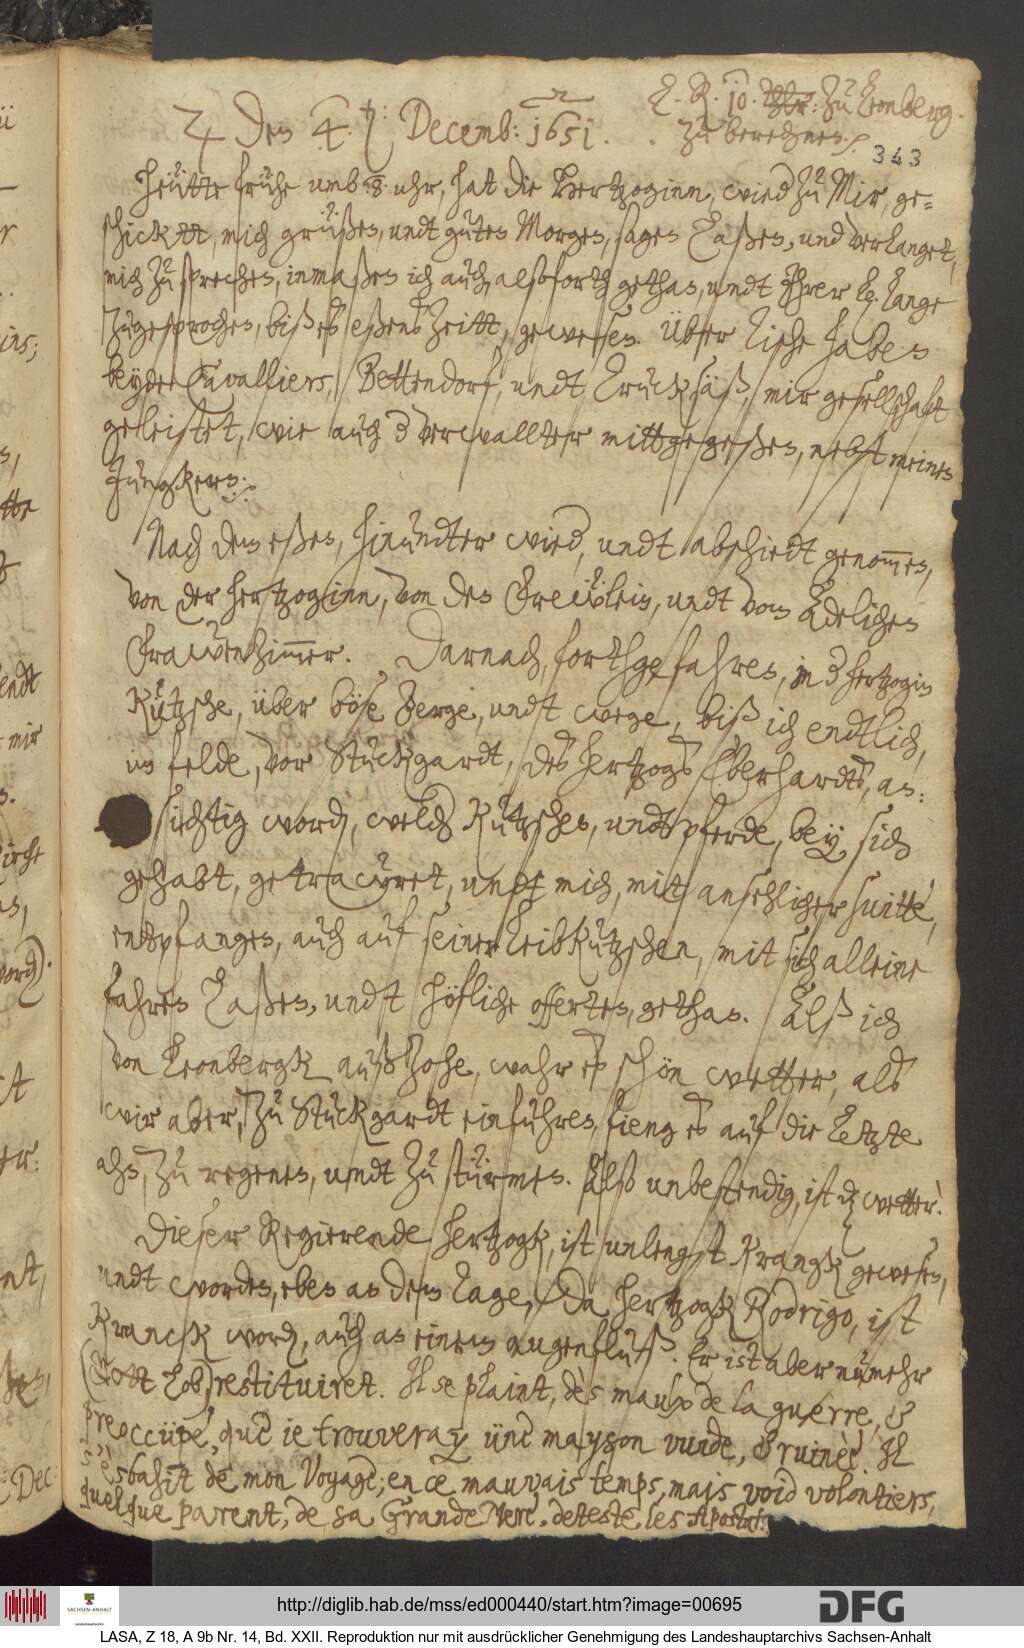 E. R. 10. Thlr: Zu Leonberg.
♃ den 4: ten: Decemb: 1651. . zu berechnen.
343
Heütte frühe umb 8 uhr, hat die Hertzoginn, wied Zu Mir, ge=
schicktt, mich grüßen, undt guten Morgen, sagen Laßen, und verlanget,
mich Zu sprechen, inmaßen ich auch, alsoforth gethan, undt Ihrer Lg. lange
Zugesprochen, biß es eßens Zeitt, gewesen. Über Tische haben
beyde Cavalliers, Bettendorf, undt Trucksäß, mir gesellschaft
geleistet, wie auch der verwallter mittgegeßen, nebst meinen
Jungkern.
Nach dem eßen, hinundter wied, undt abschiedt genommen,
von der Hertzoginn, von den Frewlein, undt vom Adelichen
Frawenzimmer. Darnach, forthgefahren, in der Hertzogin
Kutzsche, über böse Berge, undt wege, biß ich endtlich,
im felde, vor Stuckgardt, des Hertzogs Eberhardts, an:
sichtig word, welch Kutzschen, undt pferde, bey sich
gehabt, getracyret, undt mich, mit ansehlicher suitte,
entpfangen, auch auf seiner LeibKutzschen, mit sich alleine
fahren Laßen, undt höfliche offerten, gethan. Alß ich
von Leonbergk außzohe, wahr es schön wetter, als
wir aber, Zu Stuckgardt einfuhren, fieng es auf die Letzte
ahn, Zu regenen, undt Zu stürmen. Also unbestendig, ist das wetter.
Dieser Regierende Hertzogk, ist unlengst Krangk gewesen,
undt worden, eben an dem Tage, Da Hertzogk Rodrigo, ist
Kranck word, auch an einem augenfluß. Er ist aber numehr
(Gott Lob) restituiret. Il se plaint, dès maulx de la guerre, &
preoccüpè, que ie trouveray ünè mayson vuide, & ruinèe. Il
s'èsbahit dè mon Voyage, en cè mauvais temps, mais void volontiers,
quelque parent, de sa Grande Mere. deteste les Apostat:
http://diglib.hab.de/mss/ed000440/start.htm?image=00695
SACHSEN-ANHALT
DFG
LASA, Z 18, A 9b Nr. 14, Bd. XXII. Reproduktion nur mit ausdrücklicher Genehmigung des Landeshauptarchivs Sachsen-Anhalt